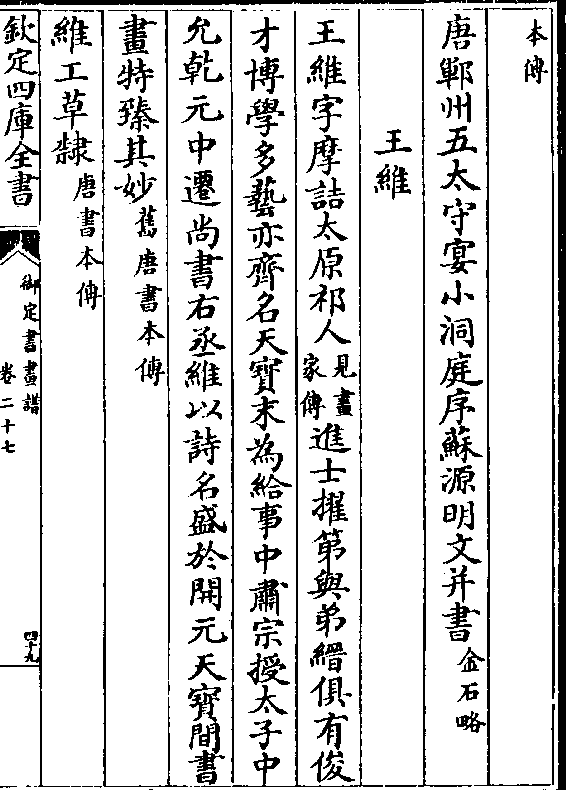 本傳
唐鄆州五太守宴小洞庭序蘇源明文并書金石略
王維
王維字摩詰太原祁人見畫家傳進士擢第與弟縉俱有俊
才博學多藝亦齊名天寶末為給事中肅宗授太子中
允乾元中遷尚書右丞維以詩名盛於開元天寶間書
畫特臻其妙舊唐書本傳
維工草隸唐書本傳
欽定四庫全書
御定書畫譜
卷二十七
四十九